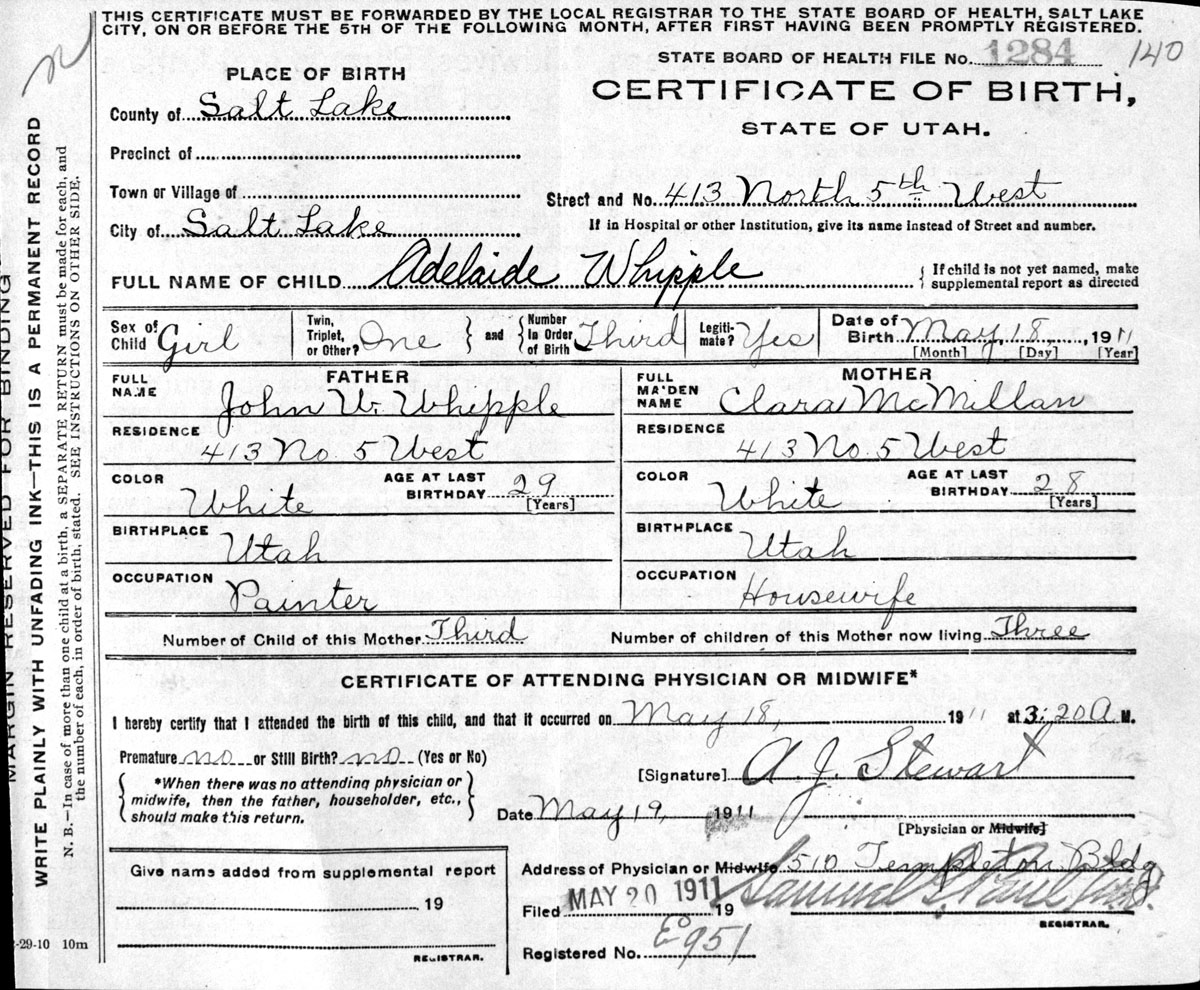 THIS CERTIFICATE MUST BE FORWARDED BY THE LOCAL REGISTRAR TO THE STATE BOARD OF HEALTH, SALT LAKE
CITY, ON OR BEFORE THE 5TH OF THE FOLLOWING MONTH, AFTER FIRST HAVING BEEN PROMPTLY REGISTERED.
STATE BOARD OF HEALTH FILE No. 1284 140
PLACE OF BIRTH
CERTIFICATE OF BIRTH,
STATE OF UTAH.
County of Salt Lake
Precinct of
Town or Village of
Street and No. 413 North 5th West
City of Salt Lake
If in Hospital or other Institution, give its name instead of Street and number.
FULL NAME OF CHILD Adelaide Whipple
If child is not yet named, make
supplemental report as directed
Sex of Child Girl
Twin, Triplet, or Other? One
and Number in Order of Birth Third
Legiti-mate? Yes
Date of Birth May 18, 1911
[Month] [Day] [Year]
FATHER
FULL NAME John W. Whipple
RESIDENCE 413 No. 5 West
COLOR White
AGE AT LAST BIRTHDAY 29
[Years]
BIRTHPLACE Utah
OCCUPATION Painter
MOTHER
FULL MAIDEN NAME Clara McMillan
RESIDENCE 413 No. 5 West
COLOR White
AGE AT LAST BIRTHDAY 28
[Years]
BIRTHPLACE Utah
OCCUPATION Housewife
Number of Child of this Mother Third
Number of children of this Mother now living Three
CERTIFICATE OF ATTENDING PHYSICIAN OR MIDWIFE*
I hereby certify that I attended the birth of this child, and that it occurred on May 18, 1911 at 3:20 A M.
Premature no or Still Birth? no (Yes or No)
*When there was no attending physician or
midwife, then the father, householder, etc.,
should make this return.
[Signature] A. J. Stewart
Date May 19, 1911
[Physician or Midwife]
Address of Physician or Midwife 510 Templeton Bldg
Give name added from supplemental report
19
REGISTRAR.
Filed MAY 20 1911 19
Samuel G. Paul
REGISTRAR.
Registered No. Eo 951
-29-10 10m
MARGIN RESERVED FOR BINDING
WRITE PLAINLY WITH UNFADING INK—THIS IS A PERMANENT RECORD
N. B.—In case of more than one child at a birth, a SEPARATE RETURN must be made for each, and
the number of each, in order of birth, stated. SEE INSTRUCTIONS ON OTHER SIDE.